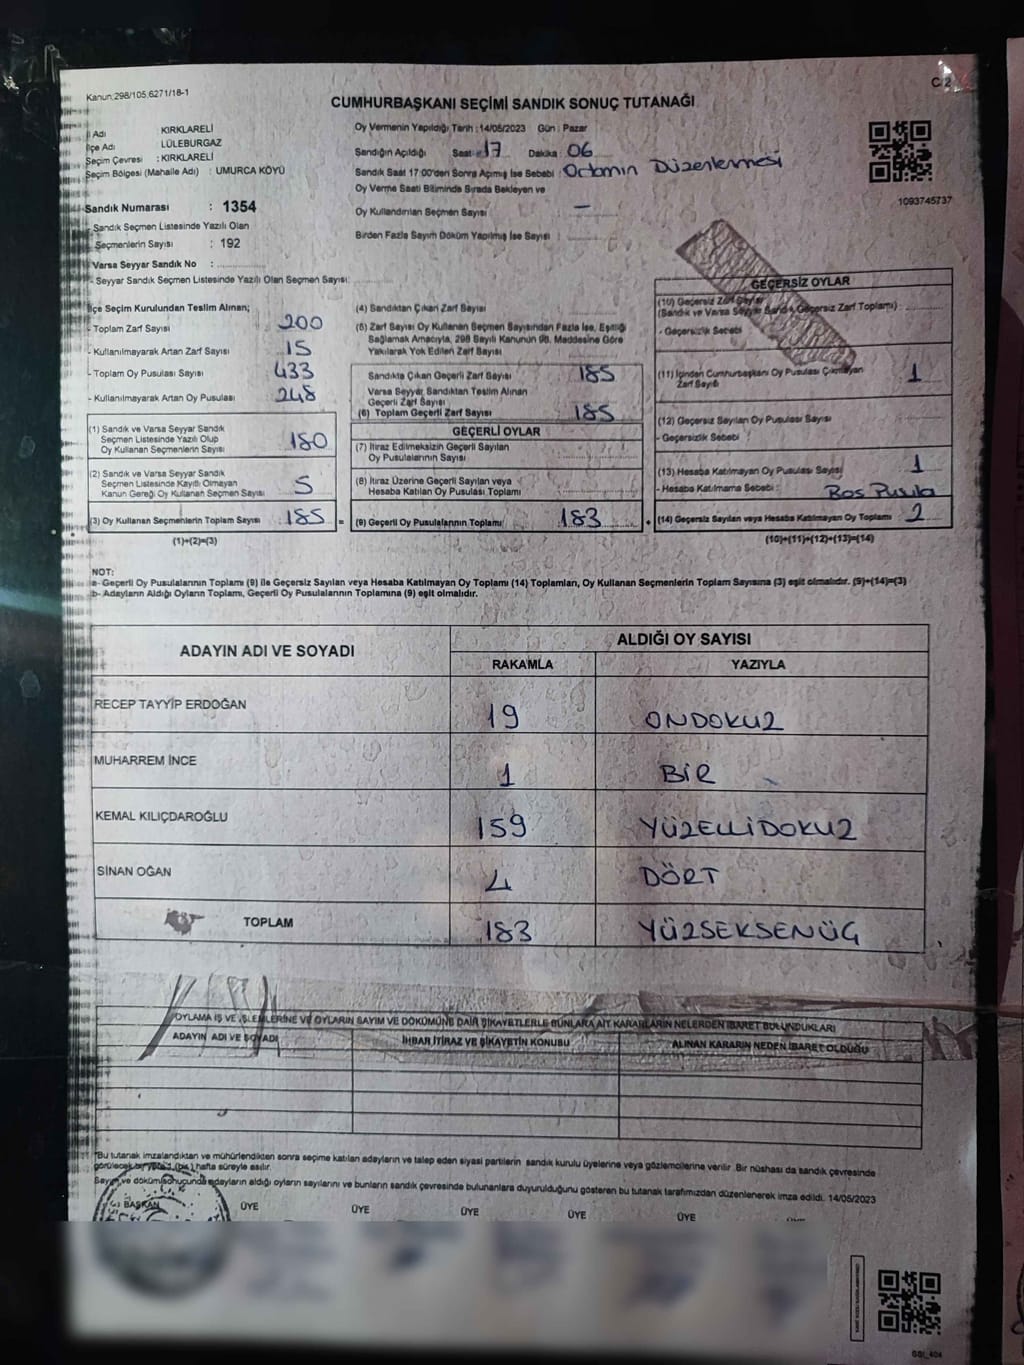 Kanun:298/105,6271/18-1
C 2
CUMHURBAŞKANI SEÇİMİ SANDIK SONUÇ TUTANAĞI
İl Adı : KIRKLARELİ
İlçe Adı : LÜLEBURGAZ
Seçim Çevresi : KIRKLARELİ
Seçim Bölgesi (Mahalle Adı) : UMURCA KÖYÜ
Sandık Numarası : 1354
- Sandık Seçmen Listesinde Yazılı Olan
Seçmenlerin Sayısı : 192
Varsa Seyyar Sandık No :
- Seyyar Sandık Seçmen Listesinde Yazılı Olan Seçmen Sayısı:
Oy Vermenin Yapıldığı Tarih :14/05/2023 Gün : Pazar
Sandığın Açıldığı Saat : 17 Dakika : 06
Sandık Saat 17:00'den Sonra Açılmış İse Sebebi : Ortamın Düzenlenmesi
Oy Verme Saati Bitiminde Sırada Bekleyen ve
Oy Kullandırılan Seçmen Sayısı —
Birden Fazla Sayım Döküm Yapılmış İse Sayısı
1093745737
İlçe Seçim Kurulundan Teslim Alınan;
- Toplam Zarf Sayısı 200
- Kullanılmayarak Artan Zarf Sayısı 15
- Toplam Oy Pusulası Sayısı 433
- Kullanılmayarak Artan Oy Pusulası 248
(1) Sandık ve Varsa Seyyar Sandık
Seçmen Listesinde Yazılı Olup
Oy Kullanan Seçmenlerin Sayısı 180
(2) Sandık ve Varsa Seyyar Sandık
Seçmen Listesinde Kayıtlı Olmayan
Kanun Gereği Oy Kullanan Seçmen Sayısı 5
(3) Oy Kullanan Seçmenlerin Toplam Sayısı 185 =
(1)+(2)=(3)
(4) Sandıktan Çıkan Zarf Sayısı
(5) Zarf Sayısı Oy Kullanan Seçmen Sayısından Fazla İse, Eşitliği
Sağlamak Amacıyla, 298 Sayılı Kanunun 98. Maddesine Göre
Yakılarak Yok Edilen Zarf Sayısı
Sandıkta Çıkan Geçerli Zarf Sayısı 185
Varsa Seyyar Sandıktan Teslim Alınan
Geçerli Zarf Sayısı
(6) Toplam Geçerli Zarf Sayısı 185
GEÇERLİ OYLAR
(7) İtiraz Edilmeksizin Geçerli Sayılan
Oy Pusulalarının Sayısı
(8) İtiraz Üzerine Geçerli Sayılan veya
Hesaba Katılan Oy Pusulası Toplamı
(9) Geçerli Oy Pusulalarının Toplamı 183 +
GEÇERSİZ OYLAR
(10) Geçersiz Zarf Sayısı
(Sandık ve Varsa Seyyar Sandık Geçersiz Zarf Toplamı)
- Geçersizlik Sebebi
(11) İçinden Cumhurbaşkanı Oy Pusulası Çıkmayan
Zarf Sayısı 1
(12) Geçersiz Sayılan Oy Pusulası Sayısı
- Geçersizlik Sebebi
(13) Hesaba Katılmayan Oy Pusulası Sayısı 1
- Hesaba Katılmama Sebebi : Bos Pusula
(14) Geçersiz Sayılan veya Hesaba Katılmayan Oy Toplamı 2
(10)+(11)+(12)+(13)=(14)
NOT:
a- Geçerli Oy Pusulalarının Toplamı (9) ile Geçersiz Sayılan veya Hesaba Katılmayan Oy Toplamı (14) Toplamları, Oy Kullanan Seçmenlerin Toplam Sayısına (3) eşit olmalıdır. (9)+(14)=(3)
b- Adayların Aldığı Oyların Toplamı, Geçerli Oy Pusulalarının Toplamına (9) eşit olmalıdır.
ADAYIN ADI VE SOYADI ALDIĞI OY SAYISI
RAKAMLA YAZIYLA
RECEP TAYYİP ERDOĞAN 19 ONDOKUZ
MUHARREM İNCE 1 BİR
KEMAL KILIÇDAROĞLU 159 YÜZELLİDOKUZ
SİNAN OĞAN 4 DÖRT
TOPLAM 183 YÜZSEKSENÜÇ
OYLAMA İŞ VE İŞLEMLERİNE VE OYLARIN SAYIM VE DÖKÜMÜNE DAİR ŞİKAYETLERLE BUNLARA AİT KARARLARIN NELERDEN İBARET BULUNDUKLARI
ADAYIN ADI VE SOYADI İHBAR İTİRAZ VE ŞİKAYETİN KONUSU ALINAN KARARIN NEDEN İBARET OLDUĞU
*Bu tutanak imzalandıktan ve mühürlendikten sonra seçime katılan adayların ve talep eden siyasi partilerin sandık kurulu üyelerine veya gözlemcilerine verilir. Bir nüshası da sandık çevresinde
görülecek bir yere 1 (bir) hafta süreyle asılır.
Sayım ve döküm sonucunda adayların aldığı oyların sayılarını ve bunların sandık çevresinde bulunanlara duyurulduğunu gösteren bu tutanak tarafımızdan düzenlenerek imza edildi. 14/05/2023
BAŞKAN ÜYE ÜYE ÜYE ÜYE ÜYE